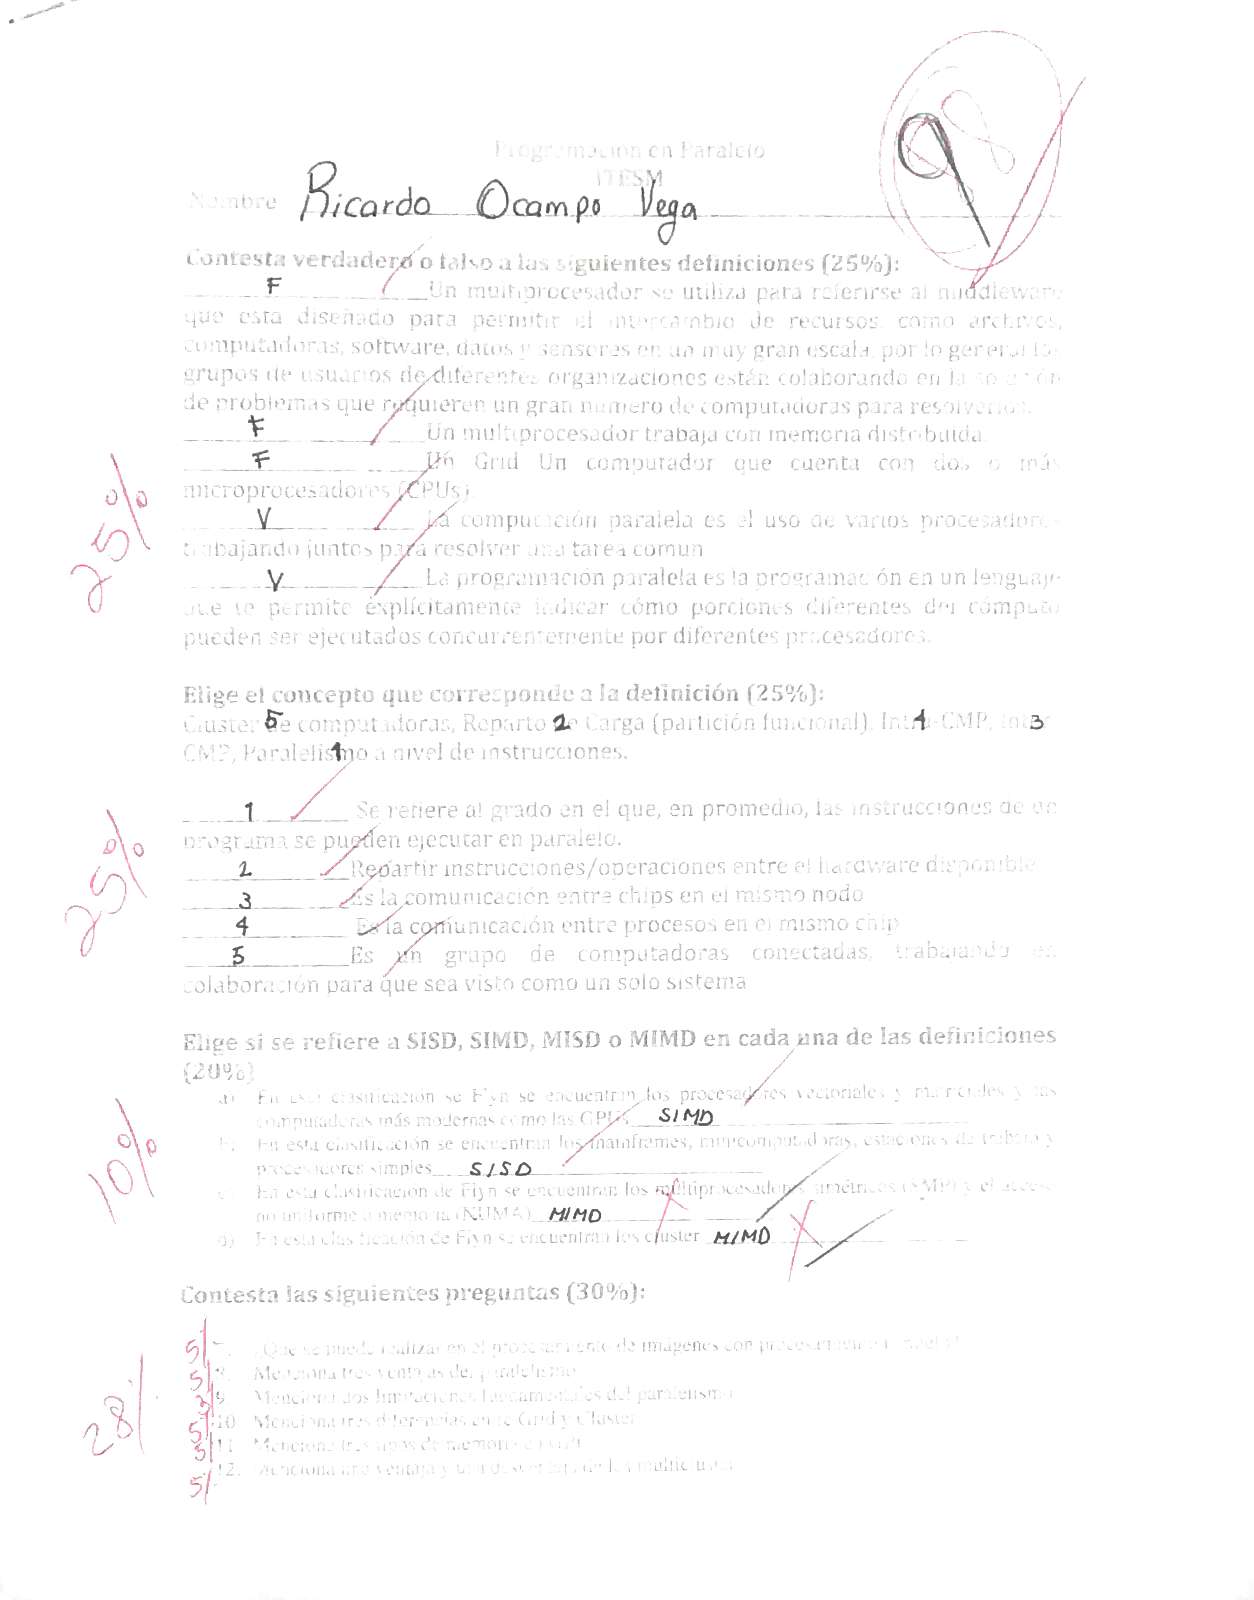 Programación en Paralelo
ITESM
Nombre Ricardo Ocampo Vega
98
Contesta verdadero o falso a las siguientes definiciones (25%):
F Un multiprocesador se utiliza para referirse al middleware
que esta diseñado para permitir el intercambio de recursos, como archivos,
computadoras, software, datos y sensores en un muy gran escala, por lo general los
grupos de usuarios de diferentes organizaciones están colaborando en la solución
de problemas que requieren un gran numero de computadoras para resolverlos.
F Un multiprocesador trabaja con memoria distribuida.
F Un Grid Un computador que cuenta con dos o más
microprocesadores (CPUs).
V La computación paralela es el uso de varios procesadores
trabajando juntos para resolver una tarea comun
V La programación paralela es la programación en un lenguaje
que te permite explícitamente indicar cómo porciones diferentes del cómputo
pueden ser ejecutados concurrentemente por diferentes procesadores.
25%
Elige el concepto que corresponde a la definición (25%):
Cluster 5 de computadoras, Reparto 2 de Carga (partición funcional), Intra-CMP 4, Inter 3
CMP, Paralelismo 1 a nivel de instrucciones.
1 Se refiere al grado en el que, en promedio, las instrucciones de un
programa se pueden ejecutar en paralelo.
2 Repartir instrucciones/operaciones entre el hardware disponible
3 Es la comunicación entre chips en el mismo nodo
4 Es la comunicación entre procesos en el mismo chip
5 Es un grupo de computadoras conectadas, trabajando en
colaboración para que sea visto como un solo sistema
25%
Elige si se refiere a SISD, SIMD, MISD o MIMD en cada una de las definiciones
(20%)
a) En esta clasificación se Flyn se encuentran los procesadores vectoriales y matriciales y las
computadoras más modernas como las GPU SIMD
b. En esta clasificación se encuentran los mainframes, minicomputadoras, estaciones de trabajo y
procesadores simples SISD
c) En esta clasificación de Flyn se encuentran los multiprocesadores simétricos (SMP) y el acceso
no uniforme a memoria (NUMA) MIMD
d) En esta clasificación de Flyn se encuentran los cluster MIMD
10%
Contesta las siguientes preguntas (30%):
5/ 7. ¿Que se puede realizar en el procesamiento de imágenes con procesamiento paralelo?
5/ 8. Menciona tres ventajas del paralelismo
3/ 9. Menciona dos limitaciones fundamentales del paralelismo
5/ 10. Menciona tres diferencias entre Grid y Cluster
5/ 11. Menciona tres tipos de memoria
5/ 12. Menciona una ventaja y una desventaja de los
28%